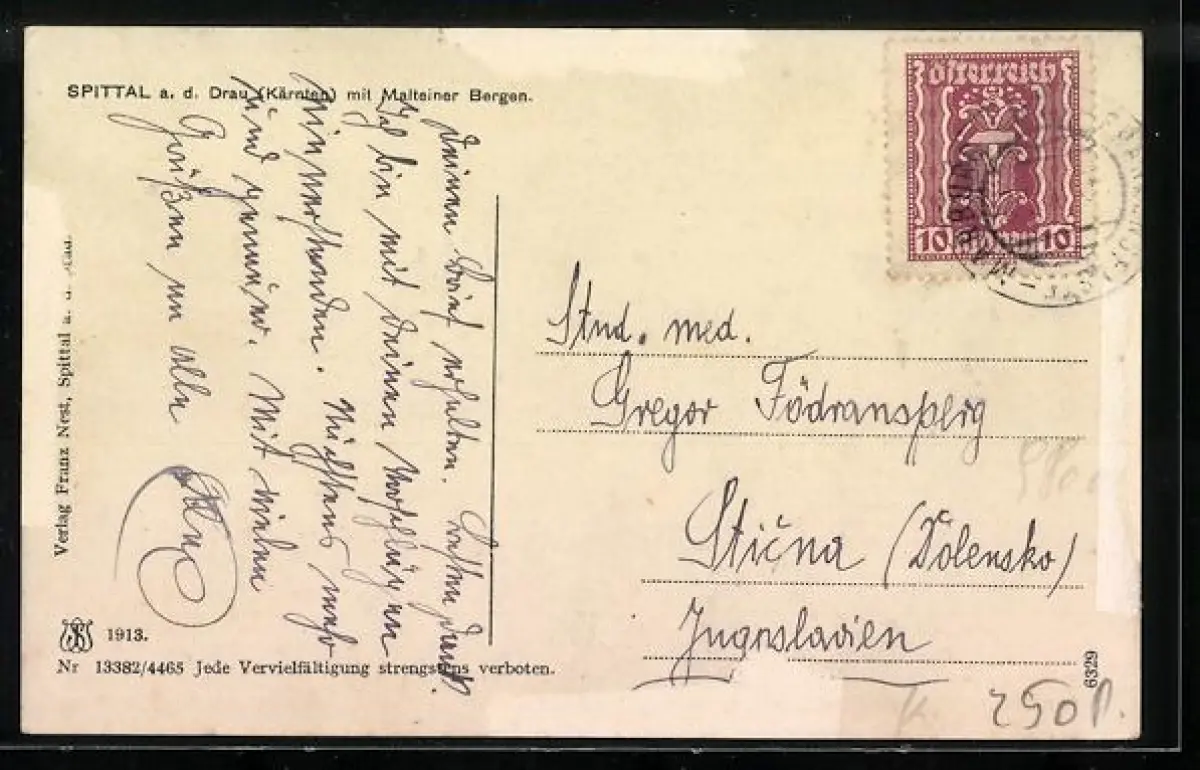 SPITTAL a. d. Drau (Kärnten) mit Malteiner Bergen.
Österreich
10 Kronen 10
Deinen Brief erhalten. Besten Dank.
Ich bin mit deinen Vorschlägen
einverstanden. Nächstens mehr
und genauer. Mit vielen
Grüßen an alle
Stud. med.
Gregor Födransperg
Stična (Dolensko)
Jugoslavien
Verlag Franz Nest, Spittal a. d. Drau.
1913.
Nr 13382/4465 Jede Vervielfältigung strengstens verboten.
6329
250